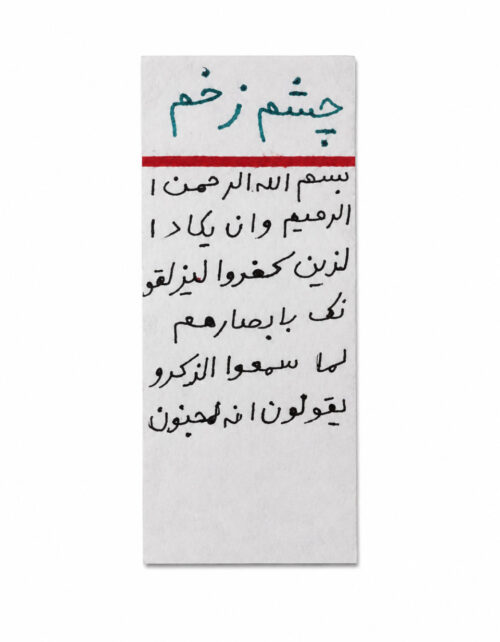 چشم زخم
بسم الله الرحمن ا
الرحیم وان یکاد ا
لذین کفروا لیزلقو
نک بابصارهم
لما سمعوا الذکرو
یقولون انه لمجنون